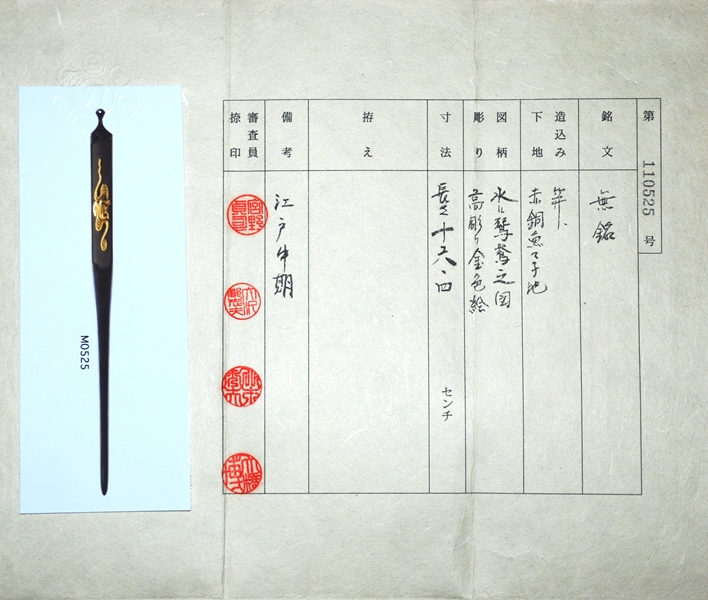 第 110525 号
銘文
無銘
造込み
下地
笄、
赤銅魚々子地
図柄
彫り
水に鴛鴦之図
高彫り金色絵
寸法
長さ 十八・四
センチ
拵え
備考
江戸中期
審査員
捺印
M0525